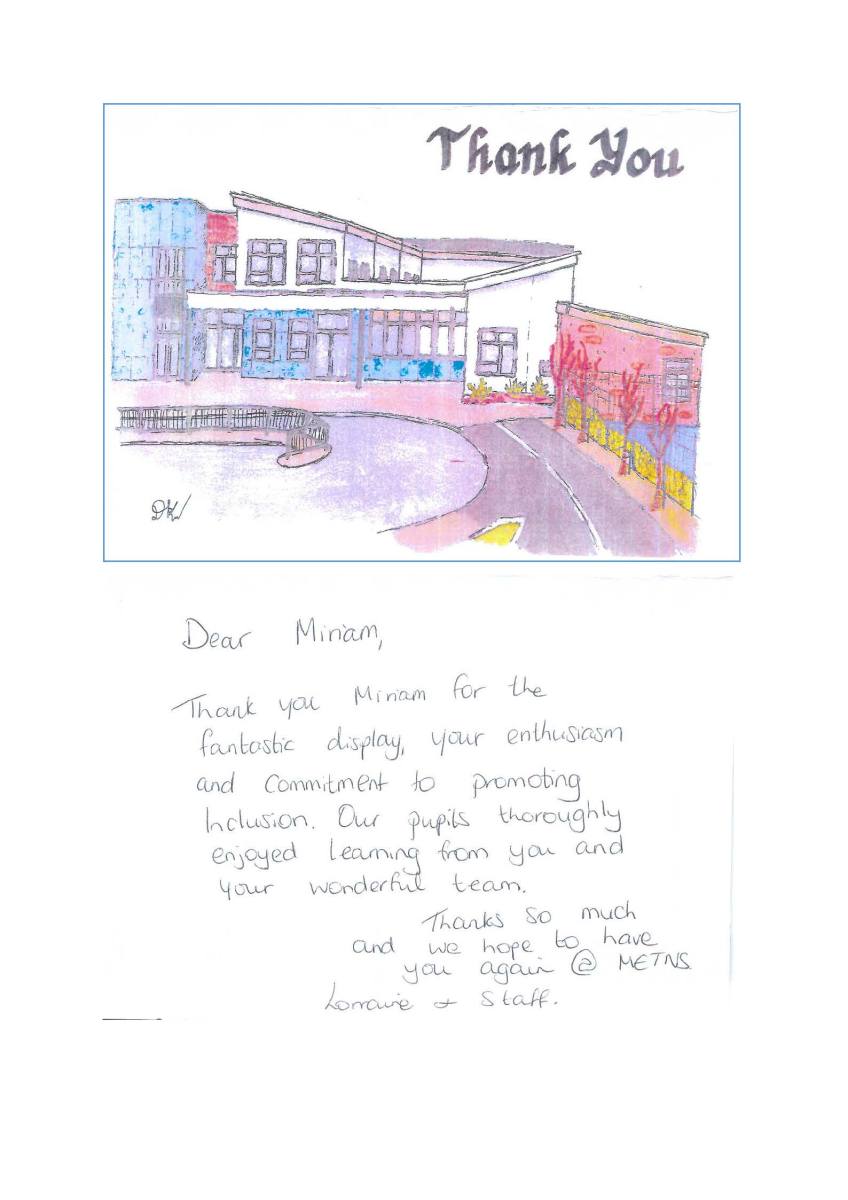 Thank You
DK
Dear Miriam,
Thank you Miriam for the
fantastic display, your enthusiasm
and commitment to promoting
Inclusion. Our pupils thoroughly
enjoyed learning from you and
your wonderful team.
Thanks so much
and we hope to have
you again @ METNS
Lorraine + Staff.